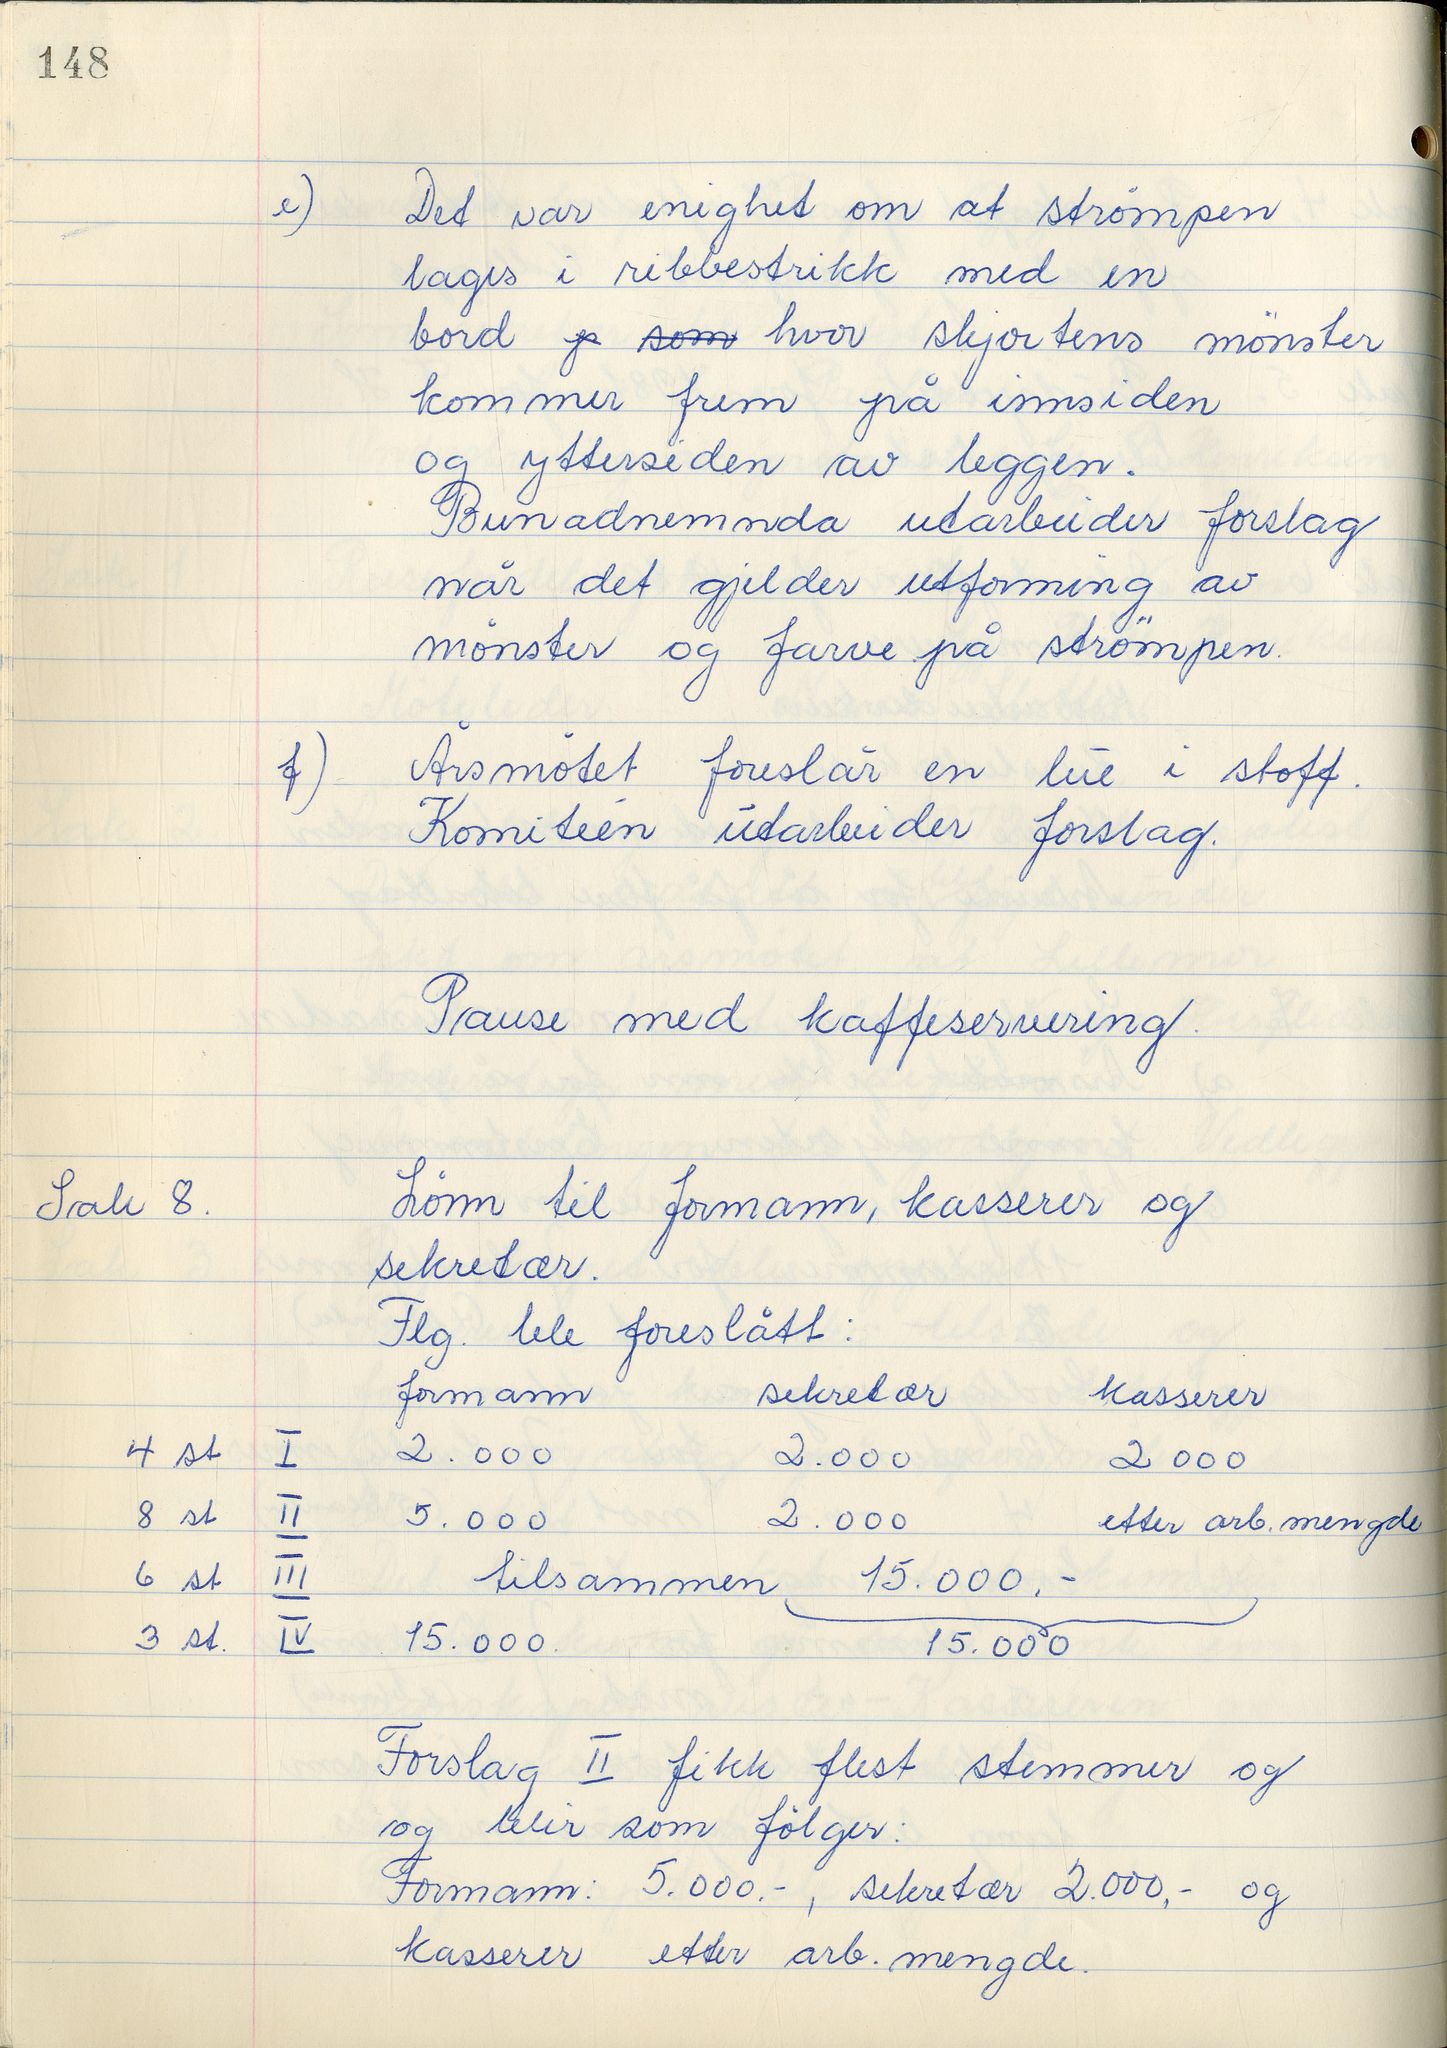 148
e) Det var enighet om at strömpen
lages i ribbestrikk med en
bord som hvor skjortens mönster
kommer frem på innsiden
og yttersiden av leggen.
Bunadnemnda utarbeider forslag
når det gjelder utforming av
mönster og farve på strömpen.
f) Årsmötet foreslår en lue i stoff.
Komiteén utarbeider forslag.
Pause med kaffeservering.
Sak 8. Lönn til formann, kasserer og
sekretær.
Flg. ble foreslått:
formann sekretær kasserer
4 st I 2.000 2.000 2000
8 st II 5.000 2.000 etter arb. mengde
6 st III tilsammen 15.000,-
3 st. IV 15.000. 15.000
Forslag II fikk flest stemmer og
og blir som fölger:
Formann: 5.000.-, sekretær 2.000,- og
kasserer etter arb. mengde.